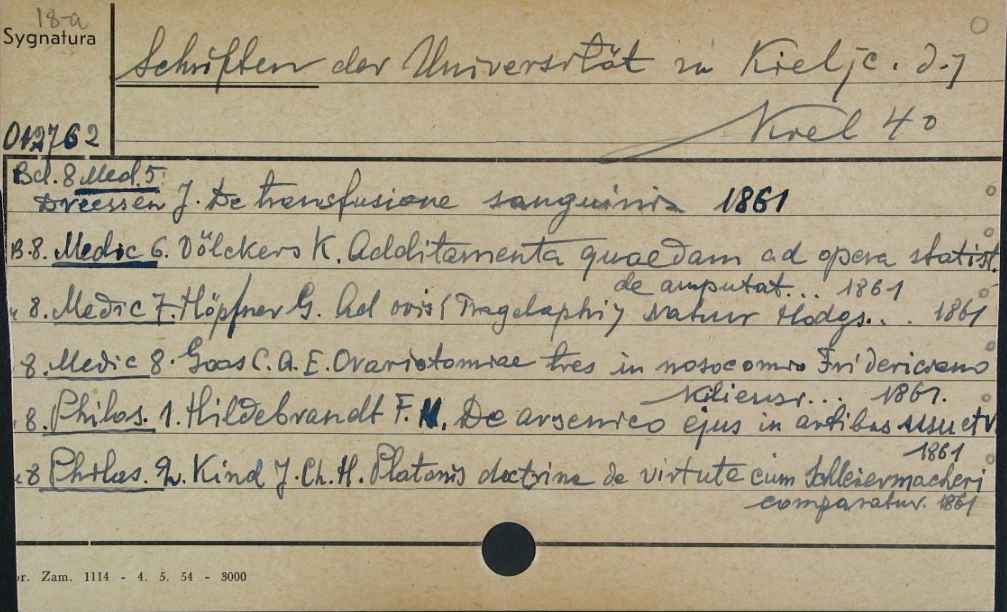 18-a
Sygnatura
Schriften der Universität zu Kiel [c. d.]
Kiel 4°
012762
Bd. 8 Med. 5.
Dreessen J. De transfusione sanguinis 1861
B. 8. Medic 6. Völckers K. Additamenta quaedam ad opera statist.
de amputat... 1861
" 8. Medic 7. Höpfner G. Ad ovis (Tragelaphi) Natur Hodgs... 1861
" 8. Medic 8. Goos C. A. E. Ovariotomiae tres in nosocomio Fridericiano
Kiliensi... 1861.
" 8. Philos. 1. Hildebrandt F. M. De arsenico ejus in artibus usu etc
1861
" 8 Philos. 2. Kind J. Ch. H. Platonis doctrina de virtute cum Schleiermacheri
comparatur. 1861
or. Zam. 1114 - 4. 5. 54 - 3000